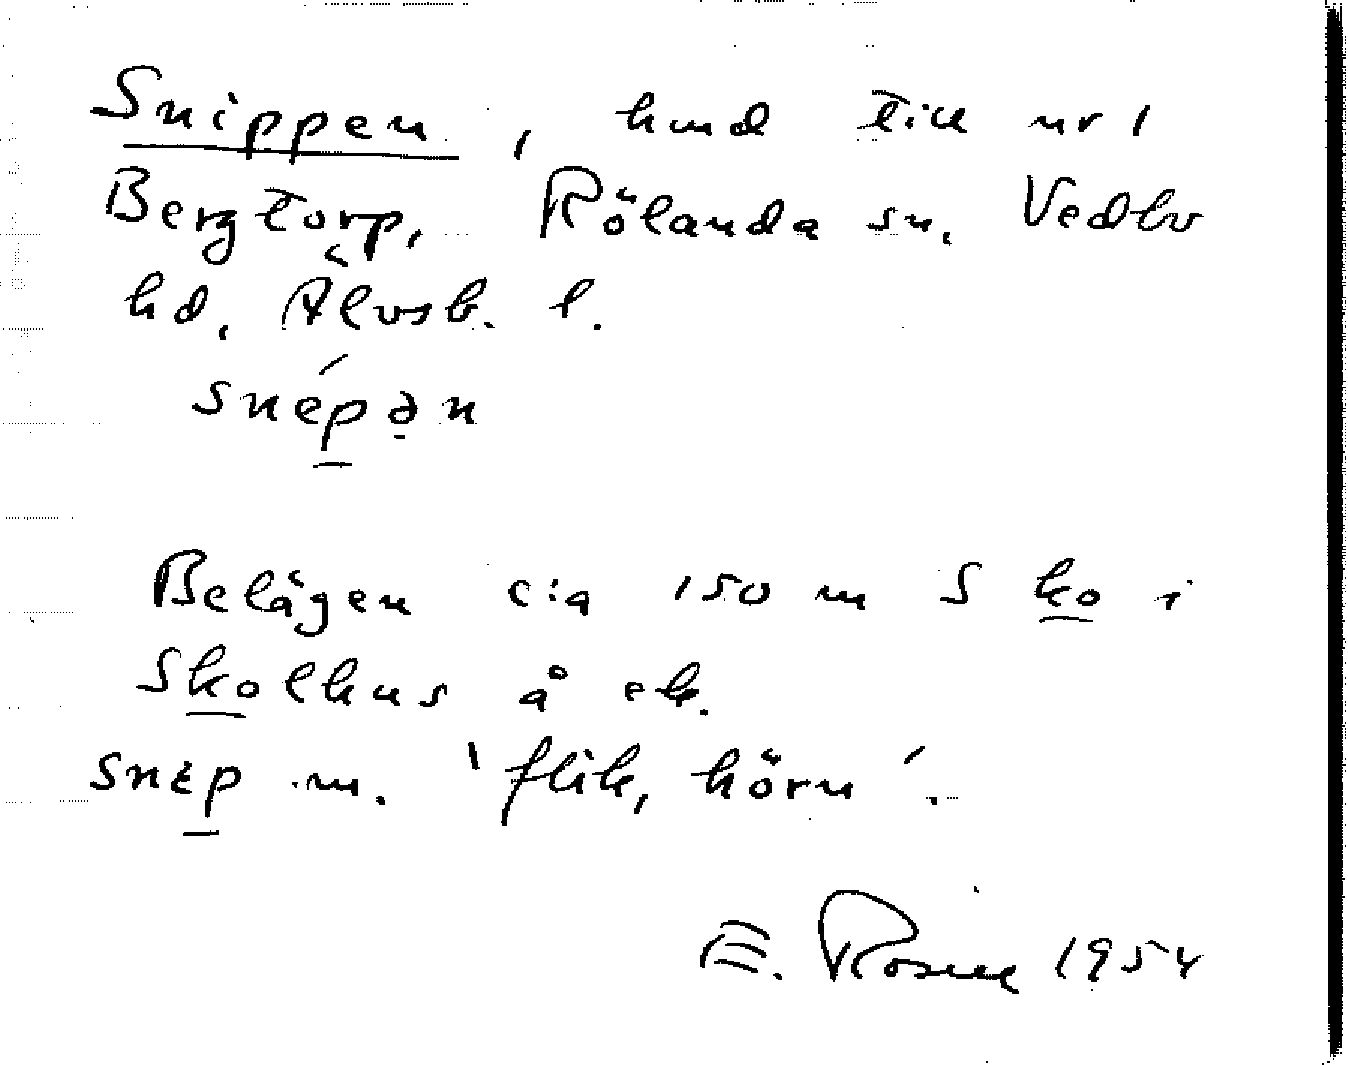 Snippen, hmd till nr 1
Bergtorp, Rölanda sn, Vedbo
hd, Älvsb. l.
snépən
Belägen c:a 150 m S ko i
Skolhus å ek.
snɛp m. 'flik, hörn'.
E. Rosell 1954